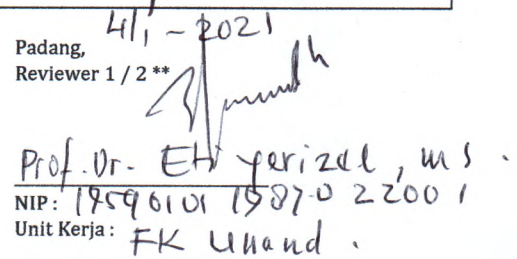 4/1 - 2021
Padang,
Reviewer 1 / 2 **
Prof. Dr. Eti Yerizel, MS.
NIP : 19590101 1987 0 22001
Unit Kerja : FK Unand.